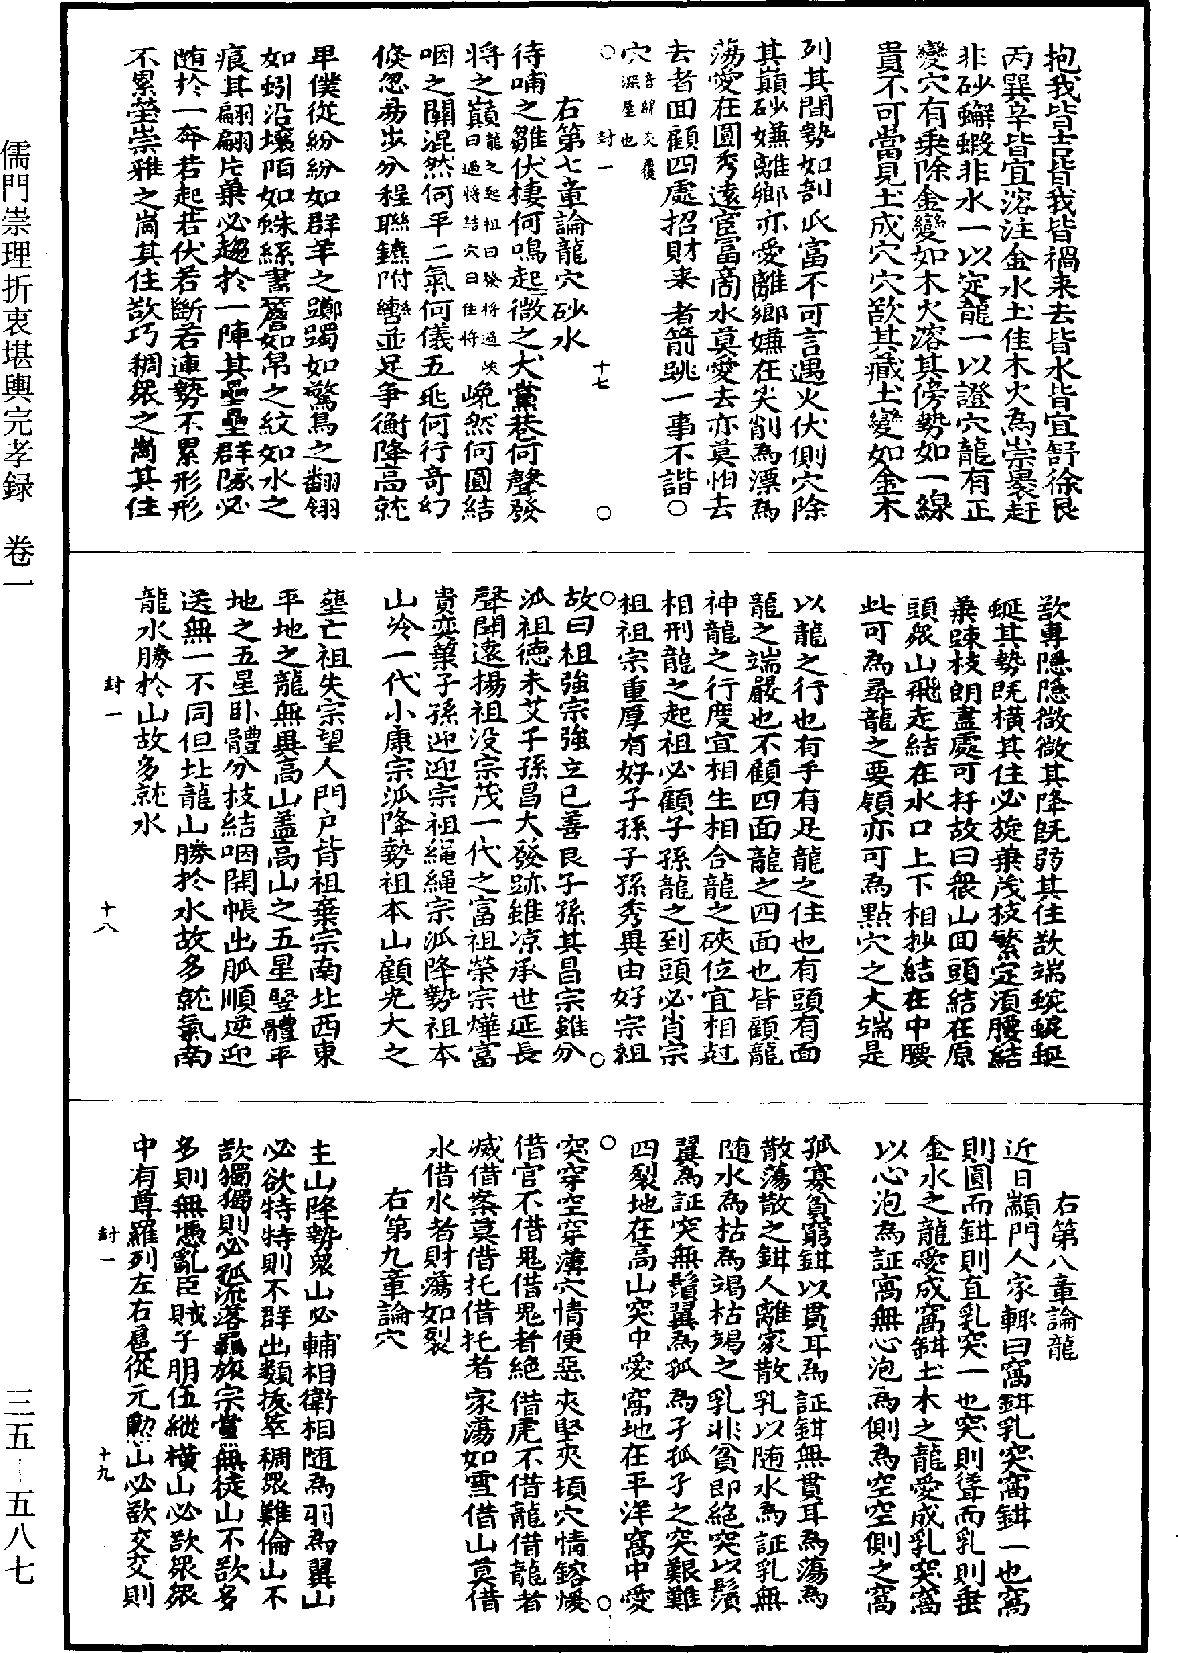 儒門崇理折衷堪輿完孝録　卷一
三五—五八七
抱我皆吉皆我皆禍来去皆水皆宜舒徐艮
丙巽辛皆宜溶注金水土佳木火為崇裹赶
非砂蠏蝦非水一以定龍一以證穴龍有正
變穴有乘除金變如木火溶其傍勢如一線
貴不可當見土成穴穴欲其藏土變如金木
列其間勢如剖瓜富不可言遇火伏側穴除
其巔砂嫌離鄉亦愛離鄉嫌在尖削為漂為
蕩愛在圓秀遠宦富商水莫愛去亦莫怕去
去者囬顧四處招財来者箭跳一事不諧○
穴音辭交覆深屋也
○　封一　十七　○
右第七章論龍穴砂水
待哺之雛伏棲何鳴起微之犬黨巷何聲發
將之巔龍之起祖曰發將過峽曰過將結穴曰住將巍然何圓結
咽之關混然何平二氣何儀五兆何行奇幻
倏忽易步分程聯鑣附轡並足爭衡降高就
卑僕從紛紛如群羊之躑躅如驚鳥之翻翎
如蚓沿壤陌如蛛絲書簷如帛之紋如水之
痕其翩翩片葉必趨於一陣其壘壘群隊必
随於一奔若起若伏若斷若連勢不累形形
不累塋崇雅之崗其住欲巧稠眾之崗其住
欲專隱隱微微其降旣弱其住欲端蜿蜿蜒
蜒其勢旣橫其住必旋葉茂枝繁定湏腰結
葉踈枝朗盡處可扞故曰衆山囬頭結在原
頭眾山飛走結在水口上下相抄結在中腰
此可為尋龍之要領亦可為點穴之大端是
以龍之行也有手有足龍之住也有頭有面
龍之端嚴也不顧四面龍之四面也皆顧龍
神龍之行度宜相生相合龍之硤位宜相尅
相刑龍之起祖必顧子孫龍之到頭必肖宗
祖祖宗重厚有好子孫子孫秀異由好宗祖
○　○
故曰祖強宗強立已善良子孫其昌宗雖分
泒祖德未艾子孫昌大發跡雖凉承世延長
聲聞遠揚祖没宗茂一代之富祖榮宗燁富
貴奕葉子孫迎迎宗祖繩繩宗泒降勢祖本
山冷一代小康宗泒降勢祖本山顧光大之
塟亡祖失宗望人門户背祖棄宗南北西東
平地之龍無異高山蓋高山之五星竪體平
地之五星卧體分枝結咽開帳出脈順逆迎
送無一不同但北龍山勝於水故多就氣南
龍水勝於山故多就水
封一　十八
右第八章論龍
近日顓門人家輙曰窩鉗乳突窩鉗一也窩
則圓而鉗則直乳突一也突則聳而乳則垂
金水之龍愛成窩鉗土木之龍愛成乳突窩
以心泡為証窩無心泡為側為空空側之窩
孤寡貧窮鉗以貫耳為証鉗無貫耳為蕩為
散蕩散之鉗人離家散乳以随水為証乳無
随水為枯為竭枯竭之乳非貧即絶突以鬚
翼為証突無鬚翼為孤為孑孤孑之突艱難
四裂地在高山突中愛窩地在平洋窩中愛
○　○
突穿空穿薄穴情便惡夾堅夾頓穴情鎔煖
借官不借鬼借鬼者絶借虎不借龍借龍者
滅借案莫借托借托者家蕩如雪借山莫借
水借水者財蕩如裂
右第九章論穴
主山降勢眾山必輔相衛相随為羽為翼山
必欲特特則不群出類拔萃稠眾難倫山不
欲獨獨則必孤流落羈旅宗黨無徒山不欲多
多則無憑亂臣賊子朋伍縱橫山必欲眾眾
中有尊羅列左右扈從元勲山必欲交交則
封一　十九